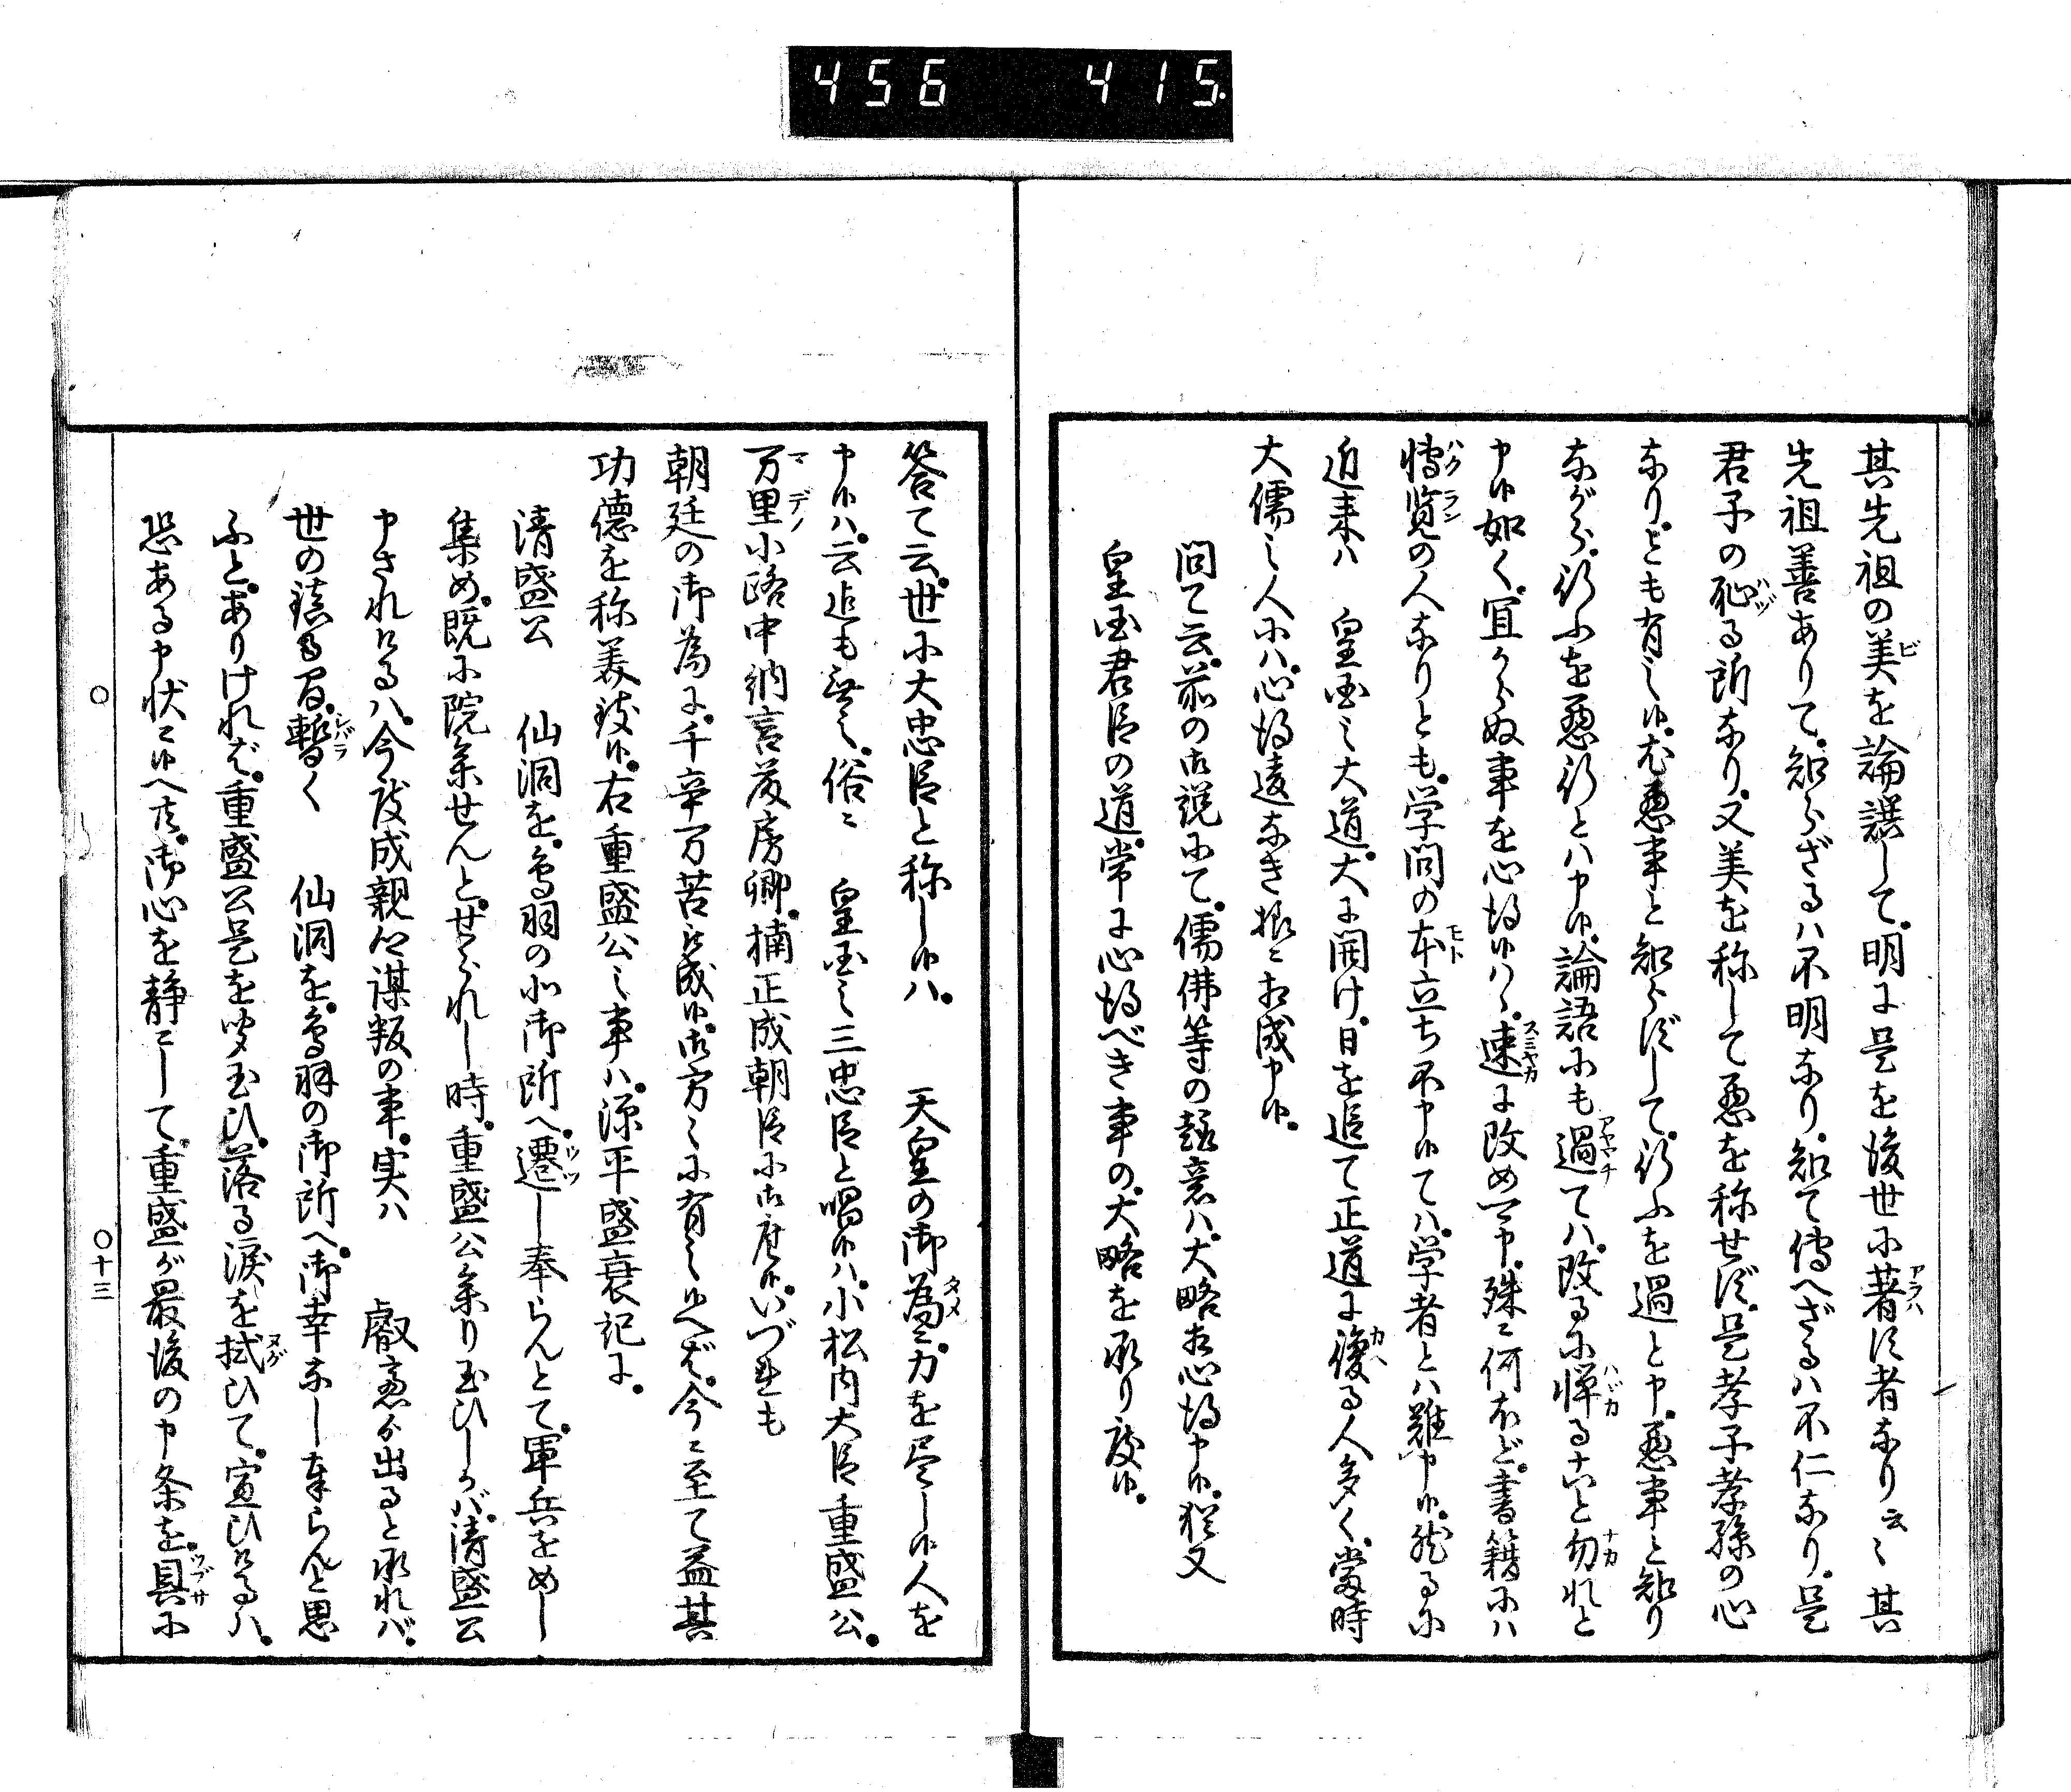 456 415
其先祖の美を論譔して。明に是を後世に著す者なり云〻其
先祖善ありて。知らざるハ不明なり。知て傳へざるハ不仁なり。是
君子の恥る所なり。又美を称して悪を称せず。是孝子孝孫の心
なり。とも有之候。尤悪事と知らずして。行ふを過と申。悪事と知り
ながら。行ふを悪行とハ申候。論語にも過てハ。改るに憚ること勿れと
申候如く。宜からぬ事を心得候ハヾ。速に改め可申。殊ニ何ほど。書籍にハ
博覧の人なりとも。学問の本立ち不申候てハ。学者とハ難申候。然るに
近来ハ 皇国之大道。大に開け。日を追て正道に復る人多く。當時
大儒之人にハ。心得違なき様ニ相成申候。
問て云。前の御説にて。儒佛等の趣意ハ。大略相心得申候。猶又
皇国君臣の道。常に心得べき事の。大略を承り度候。
答て云。世に大忠臣と称し候ハ。 天皇の御為ニ。力を尽し候人を
申候ハ。云迄も無之。俗ニ 皇国之三忠臣と唱候ハ。小松内大臣重盛公。
万里小路中納言藤房卿。楠正成朝臣に御座候。いづれも
朝廷の御為に。千辛万苦被成候。御方〻に有之候へば。今ニ至て益其
功德を称美致候。右重盛公之事ハ。源平盛衰記に。
清盛公 仙洞を。鳥羽の北御所へ。遷し奉らんとて。軍兵をめし
集め。既に院参せんと。せられし時。重盛公参り玉ひしかバ。清盛公
申されけるハ。今度成親卿謀叛の事。実ハ 叡慮より出ると承れバ。
世の鎮る間。暫く 仙洞を。鳥羽の御所へ。御幸なし奉らんと思
ふと。ありければ。重盛公是を聞玉ひ。落る涙を拭ひて。宣ひけるハ。
恐ある申状ニ候へ共。御心を静ニして。重盛が最後の申条を。具に
十三